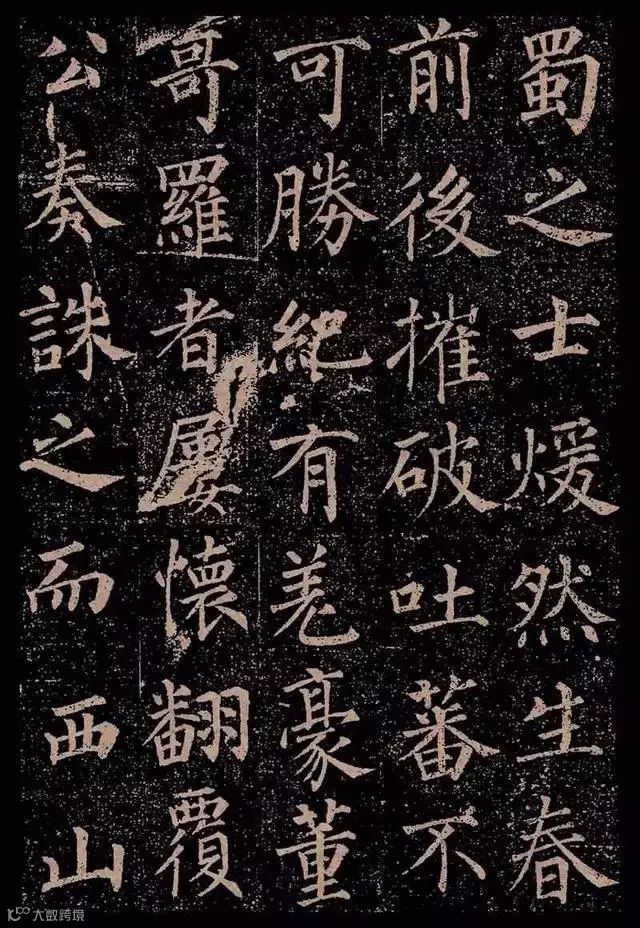 蜀之士煖然生春
前後摧破吐蕃不
可勝紀有羌豪董
哥羅者屢懷翻覆
公奏誅之而西山
大数跨境